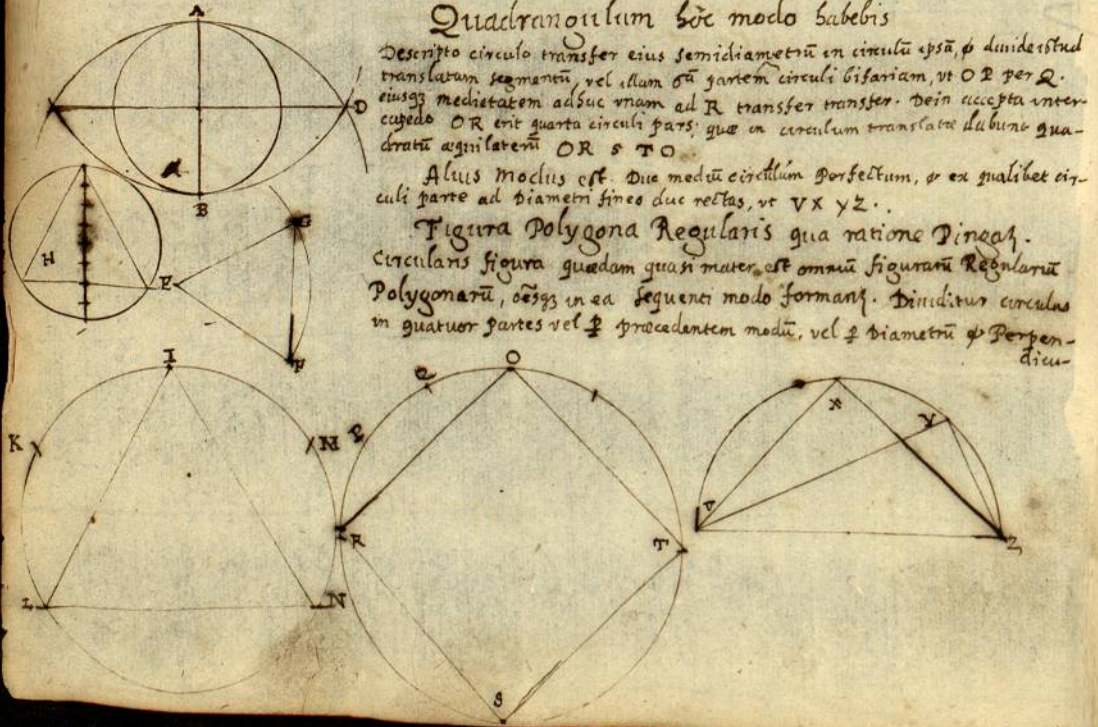 Quadrangulum hoc modo habebis
Descripto circulo transfer eius semidiametrū in circulū ipsā, & diuide istud
translatum segmentū, vel illam partem circuli bifariam, vt O P per Q.
eiusq3 medietatem adhuc vnam ad R transfer transfer. Dein accepta inter-
capedo OR erit quarta circuli pars: quæ in circulum translata dabunt qua-
dratū æquilaterū O R S T O
Alius Modus est. Duc mediū circulum Perfectum, & ex qualibet cir-
culi parte ad Diametri fines duc rectas, vt V X Y Z.
Figura Polygona Regularis qua ratione Pingaz.
Circularis figura quædam quasi mater est omniū figurarū Regularium
Polygonarū, oēsq3 in ea sequenti modo formanz. Diuiditur circulus
in quatuor partes vel ꝑ præcedentem modū, vel ꝑ Diametrū & Perpen-
dicu-
A
D
B
G
H
E
F
I
O
Q
X
K
M
P
Y
V
R
T
Z
L
N
S